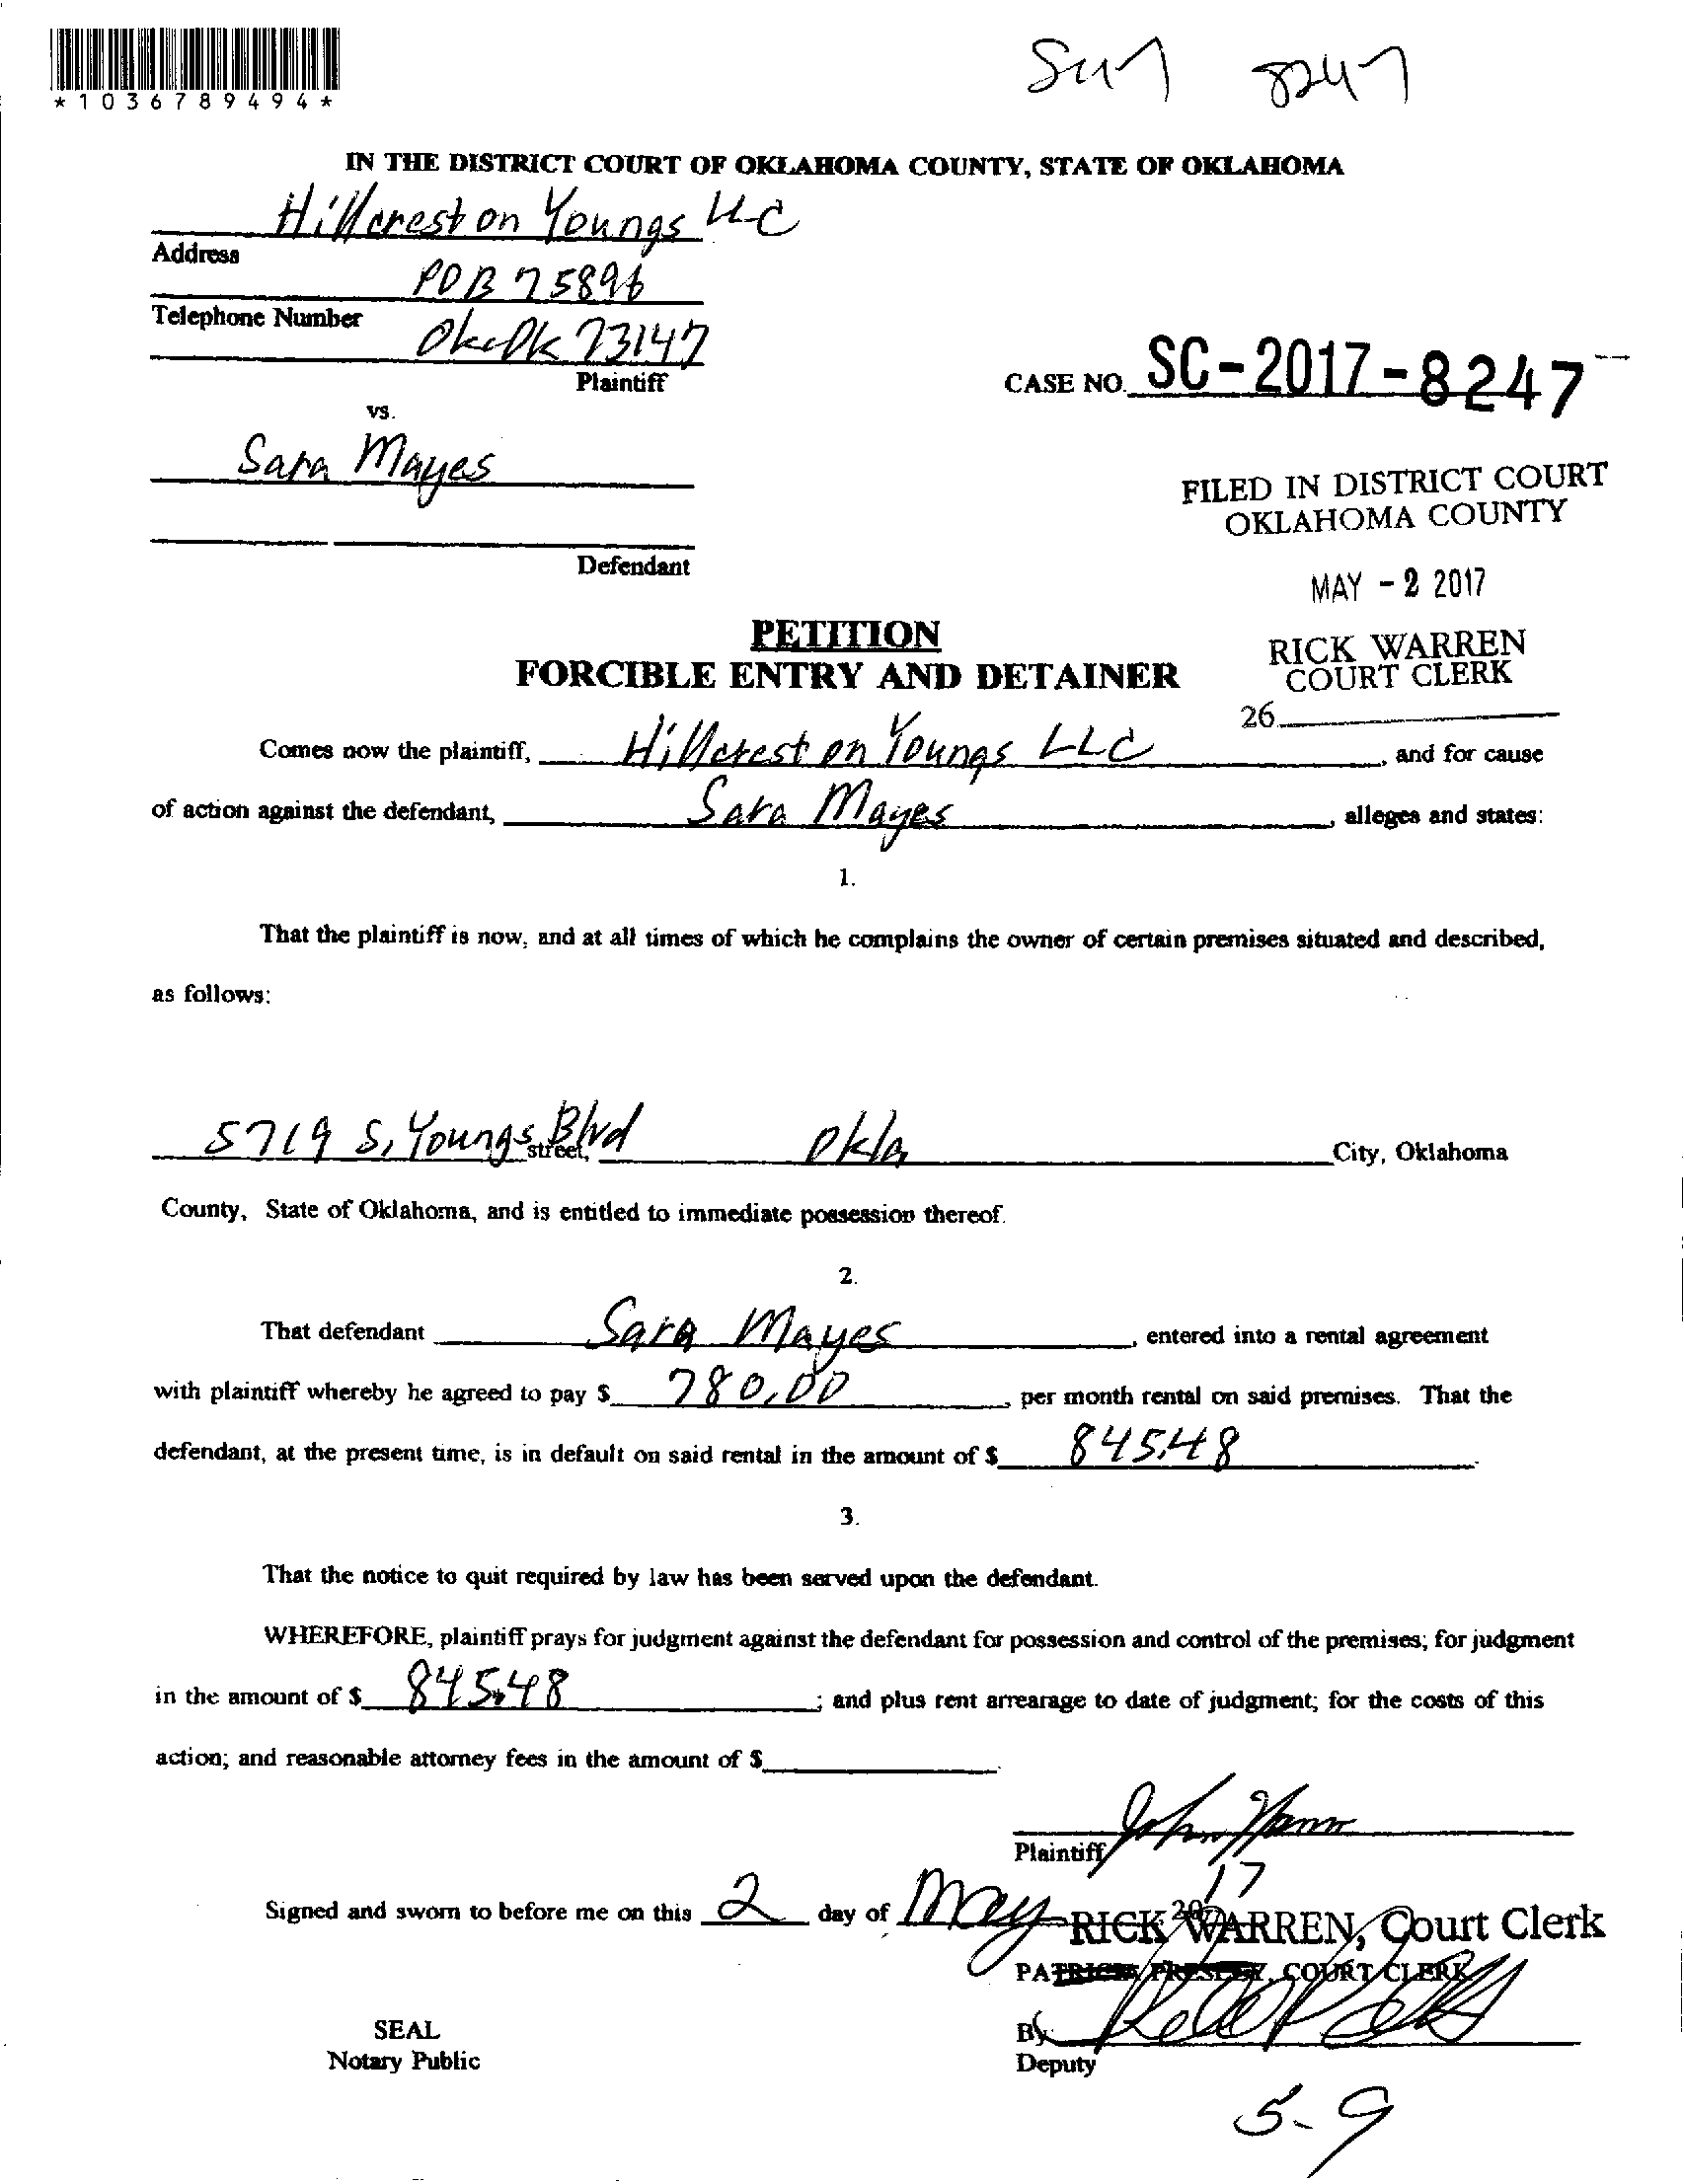 *1036789494*
8247
IN THE DISTRICT COURT OF OKLAHOMA COUNTY, STATE OF OKLAHOMA
Hillcrest on Youngs LLC
Address
POB 75896
Telephone Number
Okc Ok 73147
Plaintiff
CASE NO. SC-2017-8247
vs.
Sara Mayes
FILED IN DISTRICT COURT
OKLAHOMA COUNTY
Defendant
MAY - 2 2017
PETITION
FORCIBLE ENTRY AND DETAINER
RICK WARREN
COURT CLERK
26
Comes now the plaintiff, Hillcrest on Youngs LLC, and for cause
of action against the defendant, Sara Mayes, alleges and states:
1.
That the plaintiff is now, and at all times of which he complains the owner of certain premises situated and described,
as follows:
5719 S, Youngs Blvd street, Okla City, Oklahoma
County, State of Oklahoma, and is entitled to immediate possession thereof.
2.
That defendant Sara Mayes, entered into a rental agreement
with plaintiff whereby he agreed to pay $ 780.00, per month rental on said premises. That the
defendant, at the present time, is in default on said rental in the amount of $ 845.48.
3.
That the notice to quit required by law has been served upon the defendant.
WHEREFORE, plaintiff prays for judgment against the defendant for possession and control of the premises; for judgment
in the amount of $ 845.48; and plus rent arrearage to date of judgment; for the costs of this
action; and reasonable attorney fees in the amount of $
Plaintiff John
Signed and sworn to before me on this 2 day of May 2017
RICK WARREN, Court Clerk
PATRICIA PRESLEY, COURT CLERK
SEAL
By:
Notary Public
Deputy
5-9